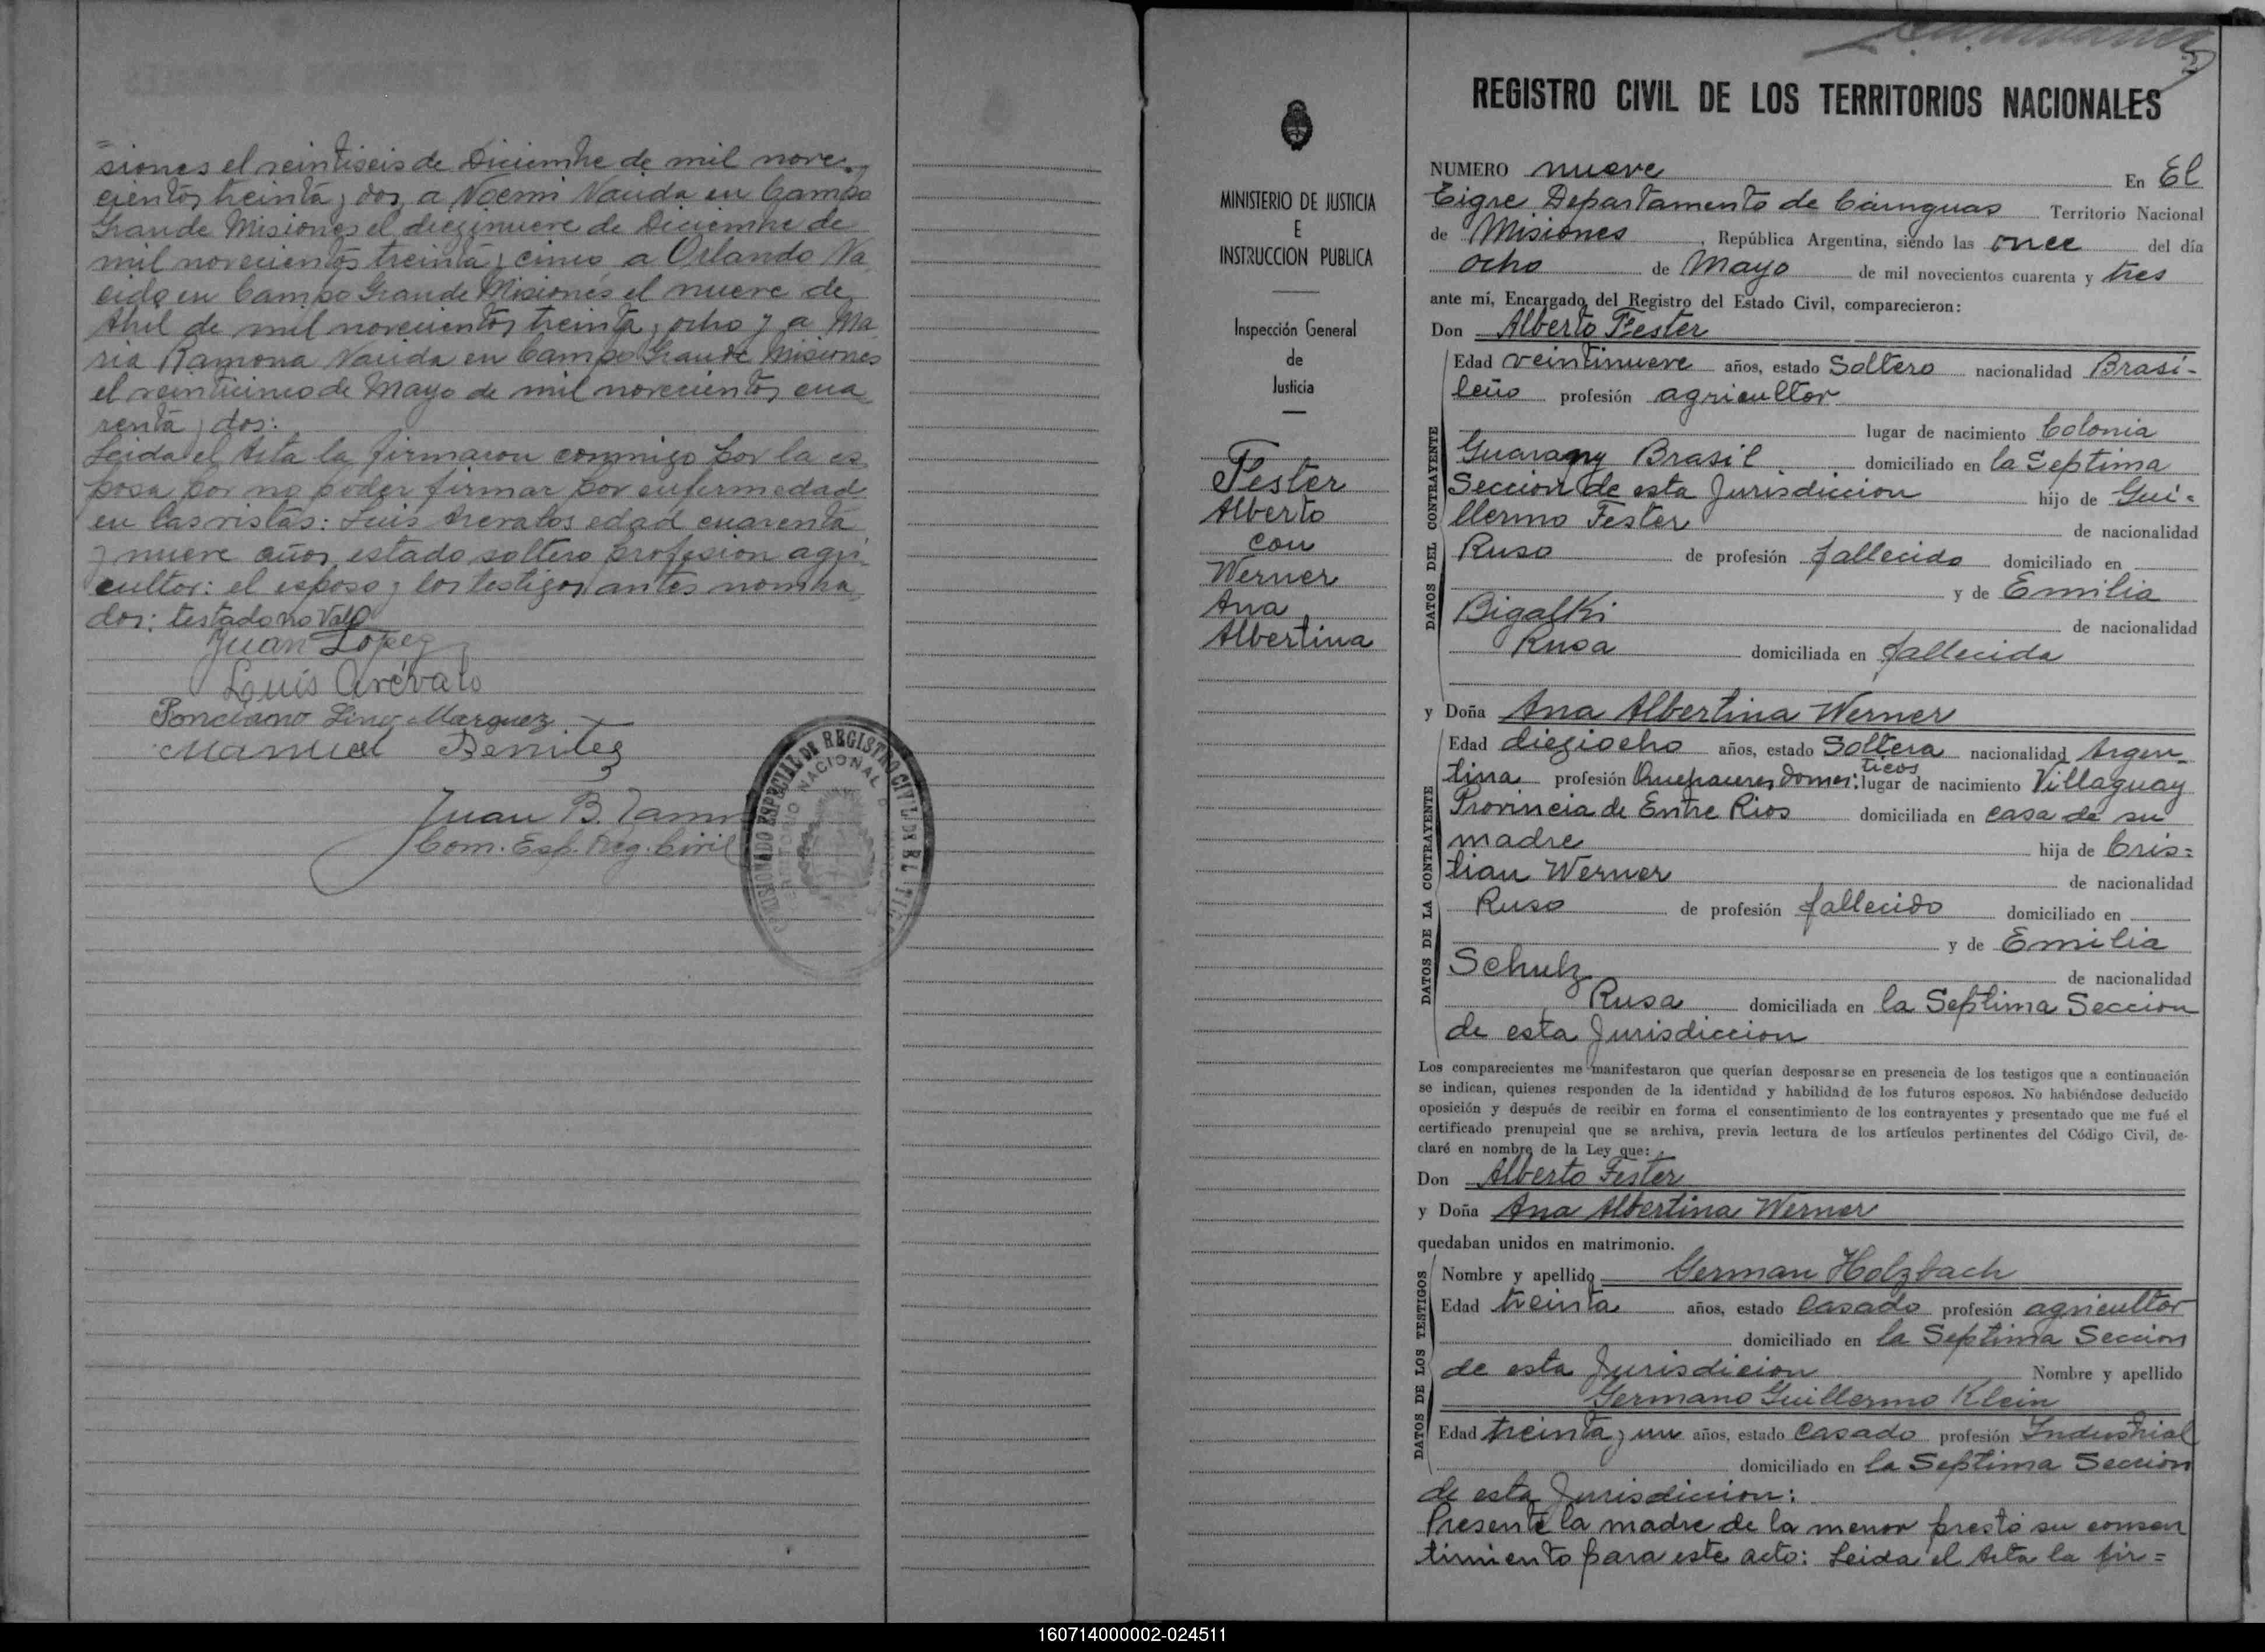 siones el veintiseis de Diciembre de mil nove
cientos treinta y dos, a Noemi Nacida en Campo
Grande Misiones el diezinueve de Diciembre de
mil novecientos treinta y cinco, a Orlando Na
cido en Campo Grande Misiones el nueve de
Abril de mil novecientos treinta y ocho y a Ma
ria Ramona Nacida en Campo Grande Misiones
el veinticinco de Mayo de mil novecientos cua
renta y dos:
Leida el Acta la firmaron conmigo por la es
posa por no poder firmar por enfermedad
en las vistas: Luis Arevalos edad cuarenta
y nueve años, estado soltero profesion agri-
cultor: el esposo y los testigos antes nombra
dos: testado no Vale
Juan Lopez
Luis Arévalo
Ponciano Lino Marquez
Manuel Benitez
Juan B.
Com. Esp. Reg. Civil
COMISIONADO ESPECIAL DE REGISTRO CIVIL DE EL TIGRE
TERRITORIO NACIONAL DE MISIONES
MINISTERIO DE JUSTICIA
E
INSTRUCCION PUBLICA
Inspección General
de
Justicia
Fester
Alberto
con
Werner
Ana
Albertina
2
REGISTRO CIVIL DE LOS TERRITORIOS NACIONALES
NUMERO nueve En El
Tigre Departamento de Cainguas Territorio Nacional
de Misiones, República Argentina, siendo las once del día
ocho de Mayo de mil novecientos cuarenta y tres
ante mí, Encargado del Registro del Estado Civil, comparecieron:
Don Alberto Fester
DATOS DEL CONTRAYENTE
Edad veintinueve años, estado Soltero nacionalidad Brasi-
leño profesión agricultor
lugar de nacimiento Colonia
Guarany Brasil domiciliado en la Septima
Seccion de esta Jurisdiccion hijo de Gui-
llermo Fester de nacionalidad
Ruso de profesión fallecido domiciliado en
y de Emilia
Bigalki de nacionalidad
Rusa domiciliada en fallecida
y Doña Ana Albertina Werner
DATOS DE LA CONTRAYENTE
Edad dieziocho años, estado Soltera nacionalidad Argen-
tina profesión Quehaceres domes:ticos lugar de nacimiento Villaguay
Provincia de Entre Rios domiciliada en casa de su
madre hija de Cris=
tian Werner de nacionalidad
Ruso de profesión fallecido domiciliado en
y de Emilia
Schulz de nacionalidad
Rusa domiciliada en la Septima Seccion
de esta Jurisdiccion
Los comparecientes me manifestaron que querían desposarse en presencia de los testigos que a continuación
se indican, quienes responden de la identidad y habilidad de los futuros esposos. No habiéndose deducido
oposición y después de recibir en forma el consentimiento de los contrayentes y presentado que me fué el
certificado prenupcial que se archiva, previa lectura de los artículos pertinentes del Código Civil, de-
claré en nombre de la Ley que:
Don Alberto Fester
y Doña Ana Albertina Werner
quedaban unidos en matrimonio.
DATOS DE LOS TESTIGOS
Nombre y apellido German Holzbach
Edad treinta años, estado Casado profesión agricultor
domiciliado en la Septima Seccion
de esta Jurisdicion Nombre y apellido
Germano Guillermo Klein
Edad treinta y un años, estado Casado profesión Industrial
domiciliado en la Septima Seccion
de esta Jurisdiccion:
Presente la madre de la menor prestó su consen
timiento para este acto: Leida el Acta la fir=
160714000002-024511